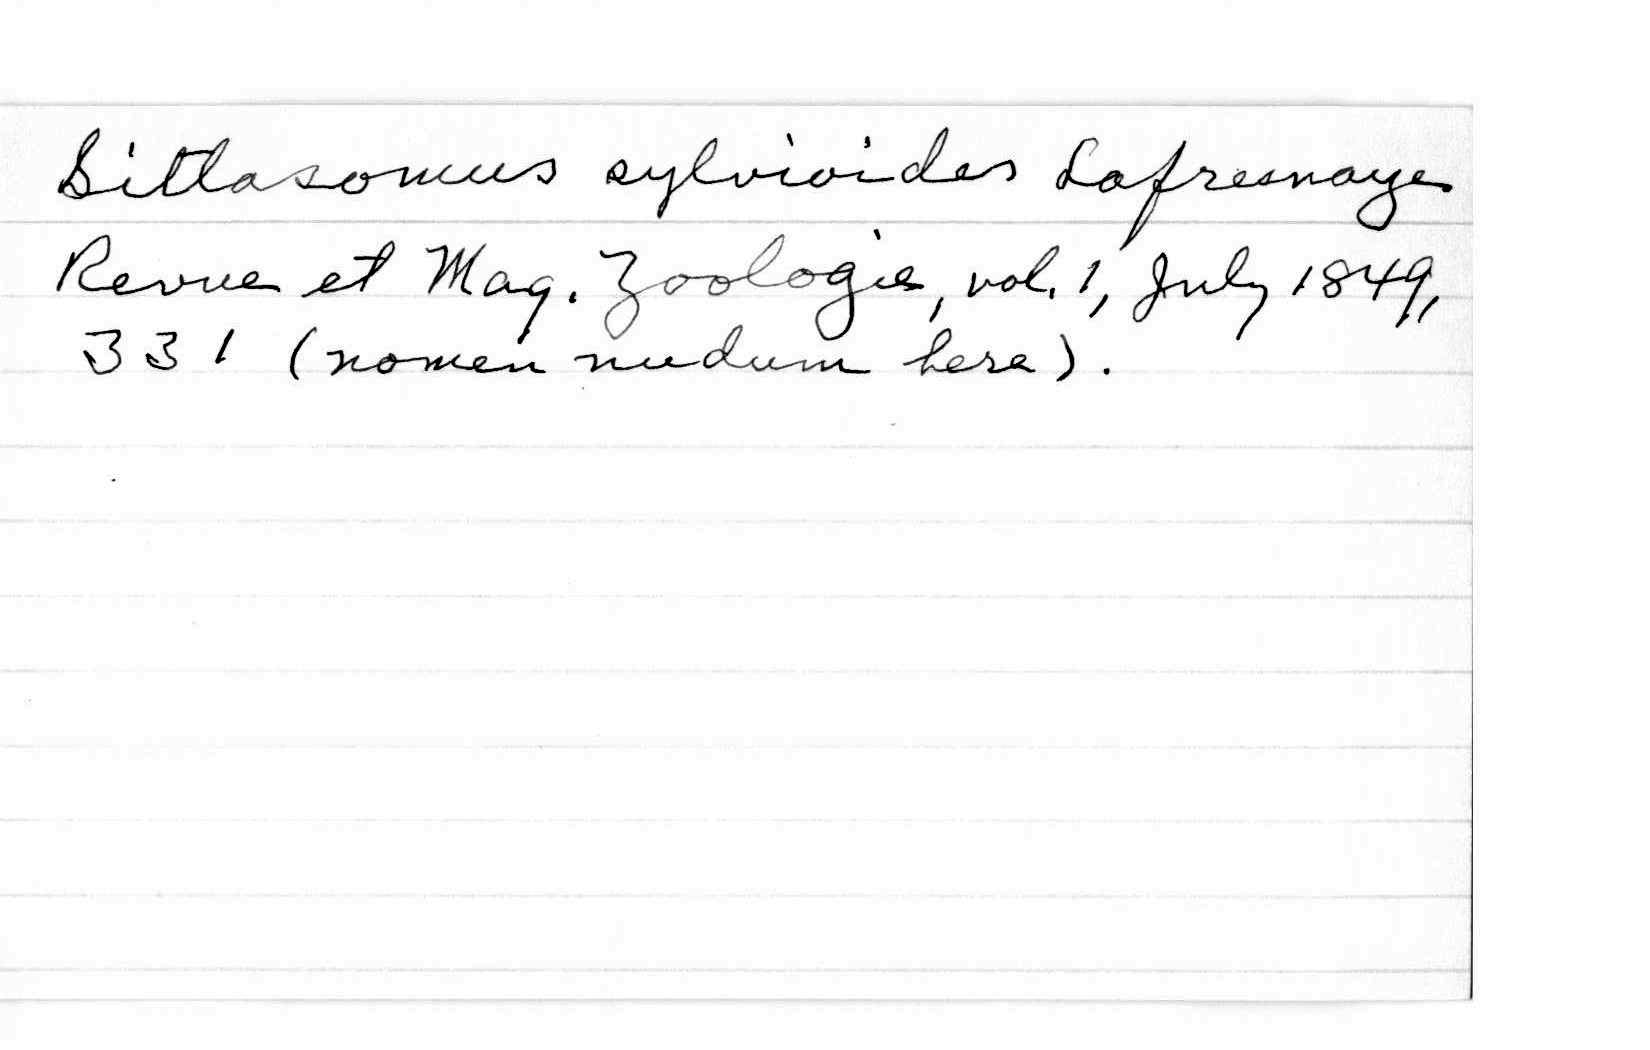 Sittasomus sylvioides Lafresnaye
Revue et Mag. Zoologie, vol. 1, July 1849,
331 (nomen nudum here).